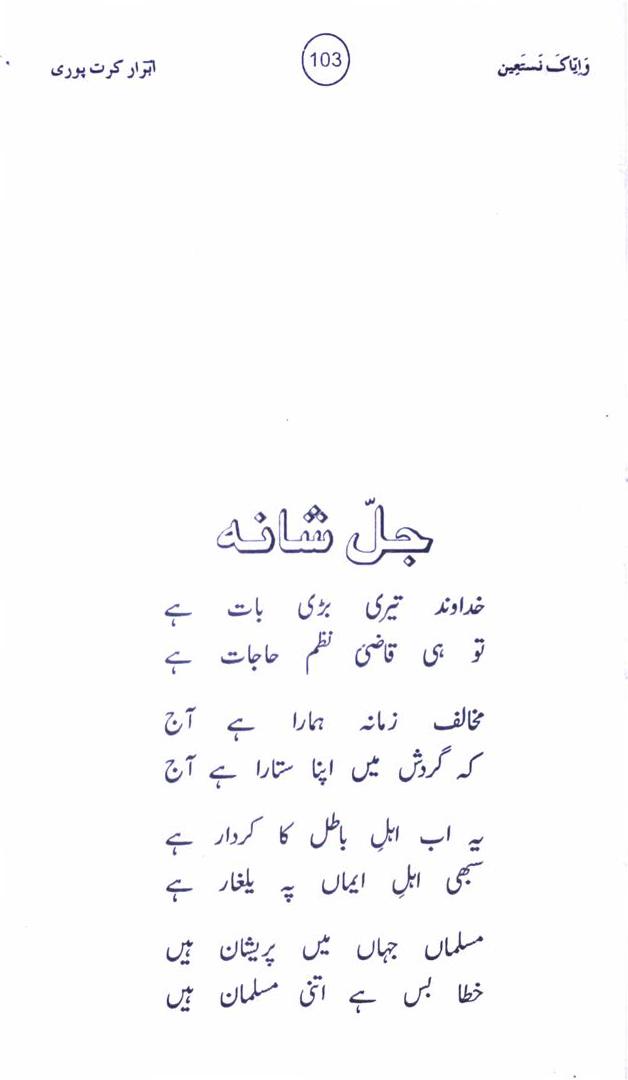 وَاِیّاکَ نَستَعِین 103 ابرار کرت پوری
جلّ شانہ
خداوند تیری بڑی بات ہے
تو ہی قاضیٔ نظم حاجات ہے
مخالف زمانہ ہمارا ہے آج
کہ گردش میں اپنا ستارا ہے آج
یہ اب اہلِ باطل کا کردار ہے
سبھی اہلِ ایماں پہ یلغار ہے
مسلماں جہاں میں پریشان ہیں
خطا بس ہے اتنی مسلمان ہیں